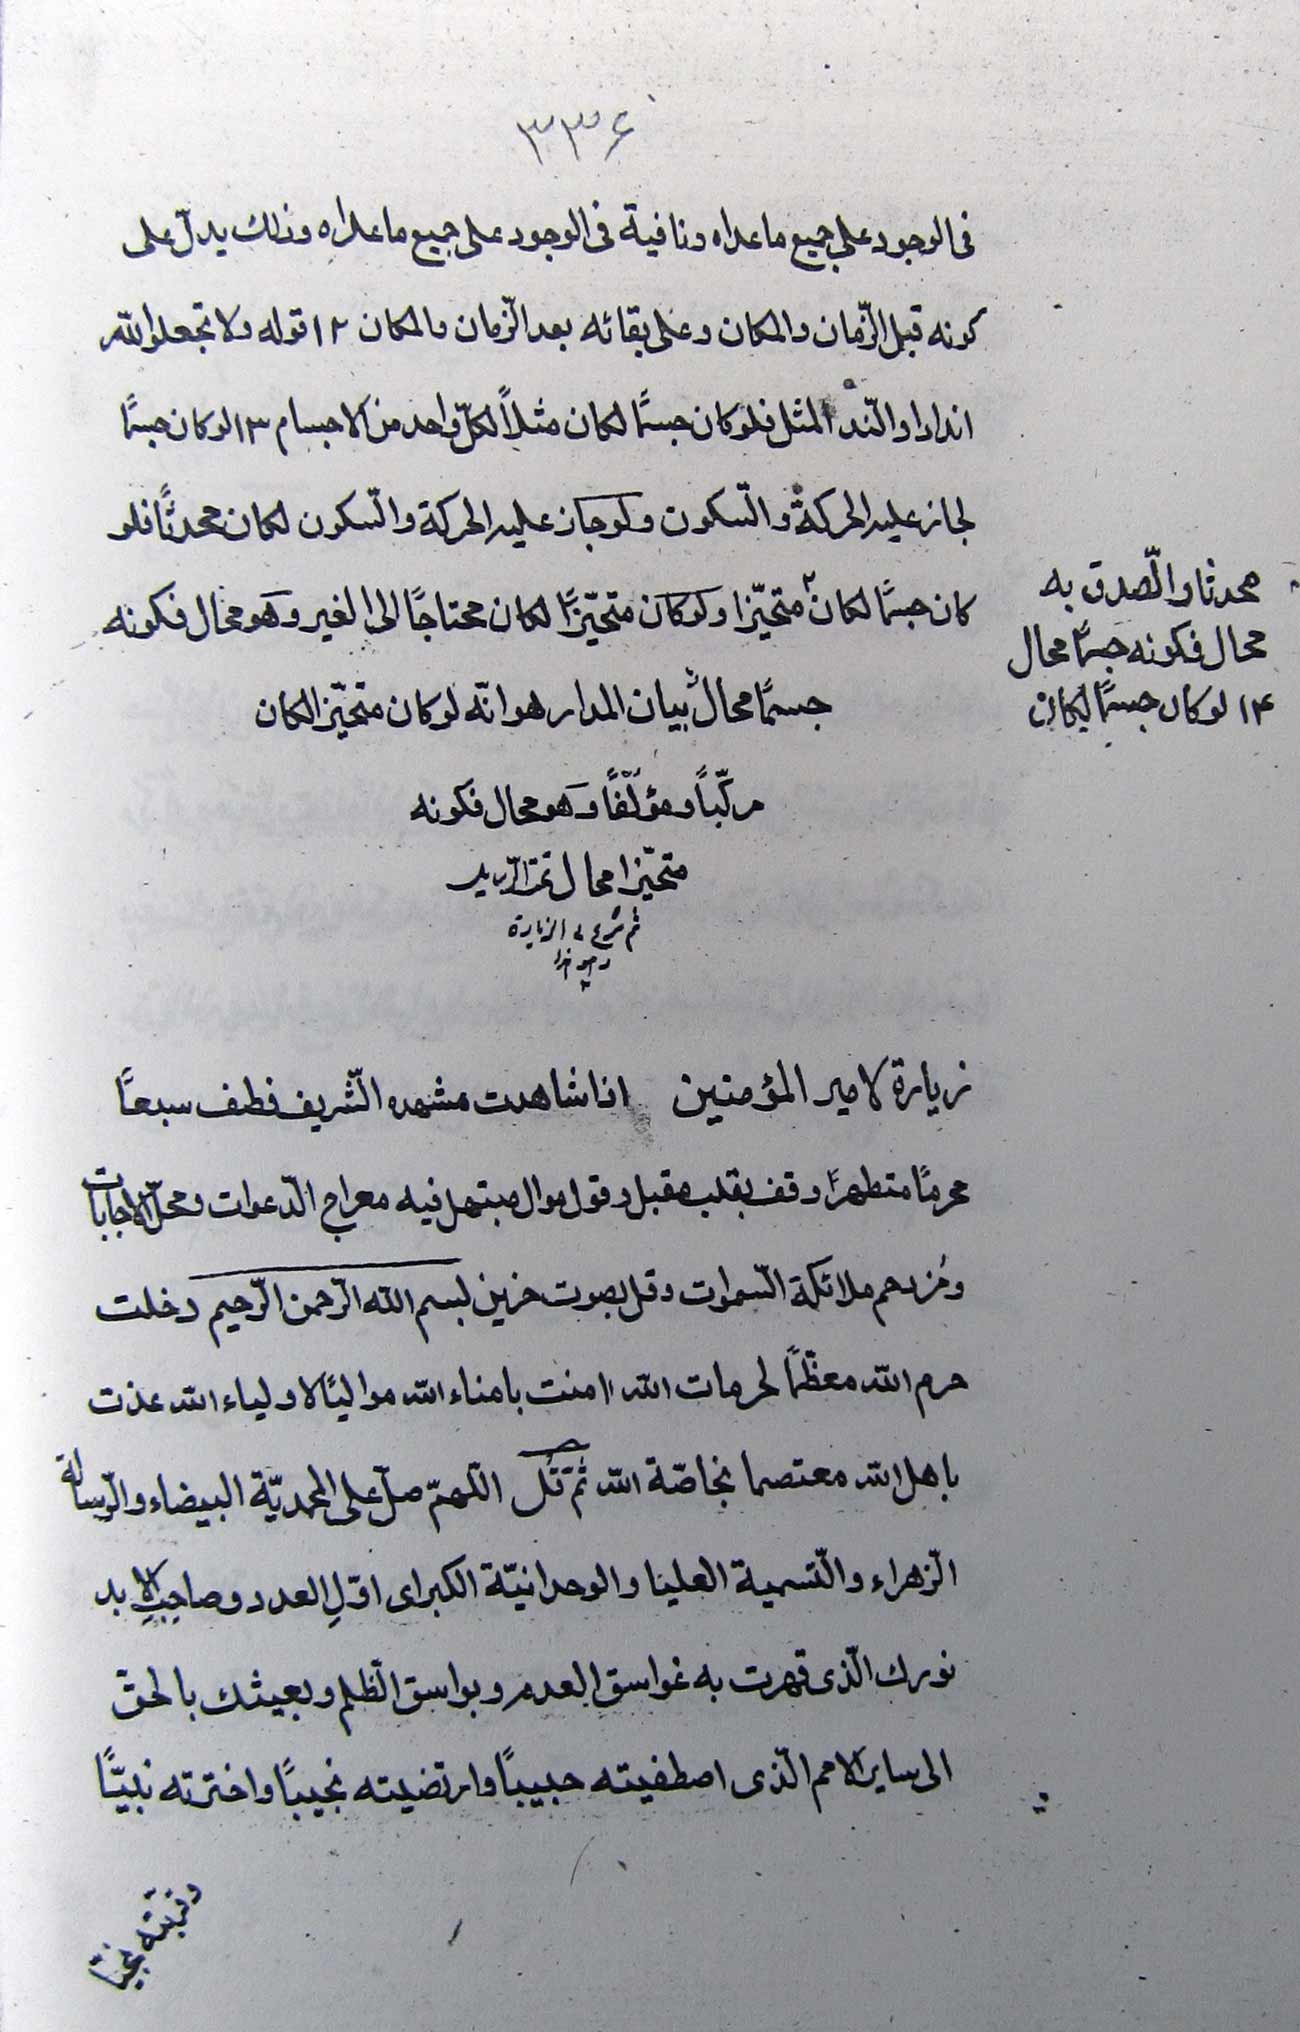 ٣٣۶
فی الوجود علی جمیع ماعداه ونافیة فی الوجود علی جمیع ماعداه وذلك یدلّ علی
کونه قبل الزّمان والمکان وعلی بقائه بعد الزّمان والمکان ١٢ قوله ولا تجعلوا لله
اندادا والنّد المثل فلو کان جسمًا لکان مثلاً لکلّ واحد من الاجسام ١٣ لو کان جسمًا
لجاز علیه الحرکة والسّکون ولو جاز علیه الحرکة والسّکون لکان محدثًا فلو
کان جسمًا لکان متحیّزا ولو کان متحیّزًا لکان محتاجًا الی الغیر وهو محال فکونه
محدثا والصّدق به
محال فکونه جسمًا محال
١۴ لو کان جسمًا لکان
جسمًا محالٌ بیان المدار هو انّه لو کان متحیّزا لکان
مرکّباً ومؤلّفاً وهو محال فکونه
متحیّزا محال تمت
ثم شرع فی الزیارة
زیارة لامیر المؤمنین اذا شاهدت مشهده الشّریف فطف سبعًا
محرمًا متطهرًا وقف بقلب مقبل وقول موال مبتهل فیه معراج الدّعوات ومحلّ الاجابات
ومُزدحم ملائکة السّموات وقل بصوت حزین بسم الله الرّحمن الرّحیم دخلت
حرم الله معظّمًا لحرمات الله امنت بامناء الله موالیًا لاولیاء الله عذت
باهل الله معتصما بخاصّة الله ثمّ قل اللّهمّ صلّ علی المحمدیّة البیضاء والرّسالة
الزّهراء والتّسمیة العلیا والوحدانیّة الکبرای اوّلِ العدد وصاحبِ الابد
نورك الّذی قهرت به غواسق العدم وبواسق الظلم وبعیثك بالحقّ
الی سایر الامم الّذی اصطفیته حبیبًا وارتضیته نجیبًا واخترته نبیّا